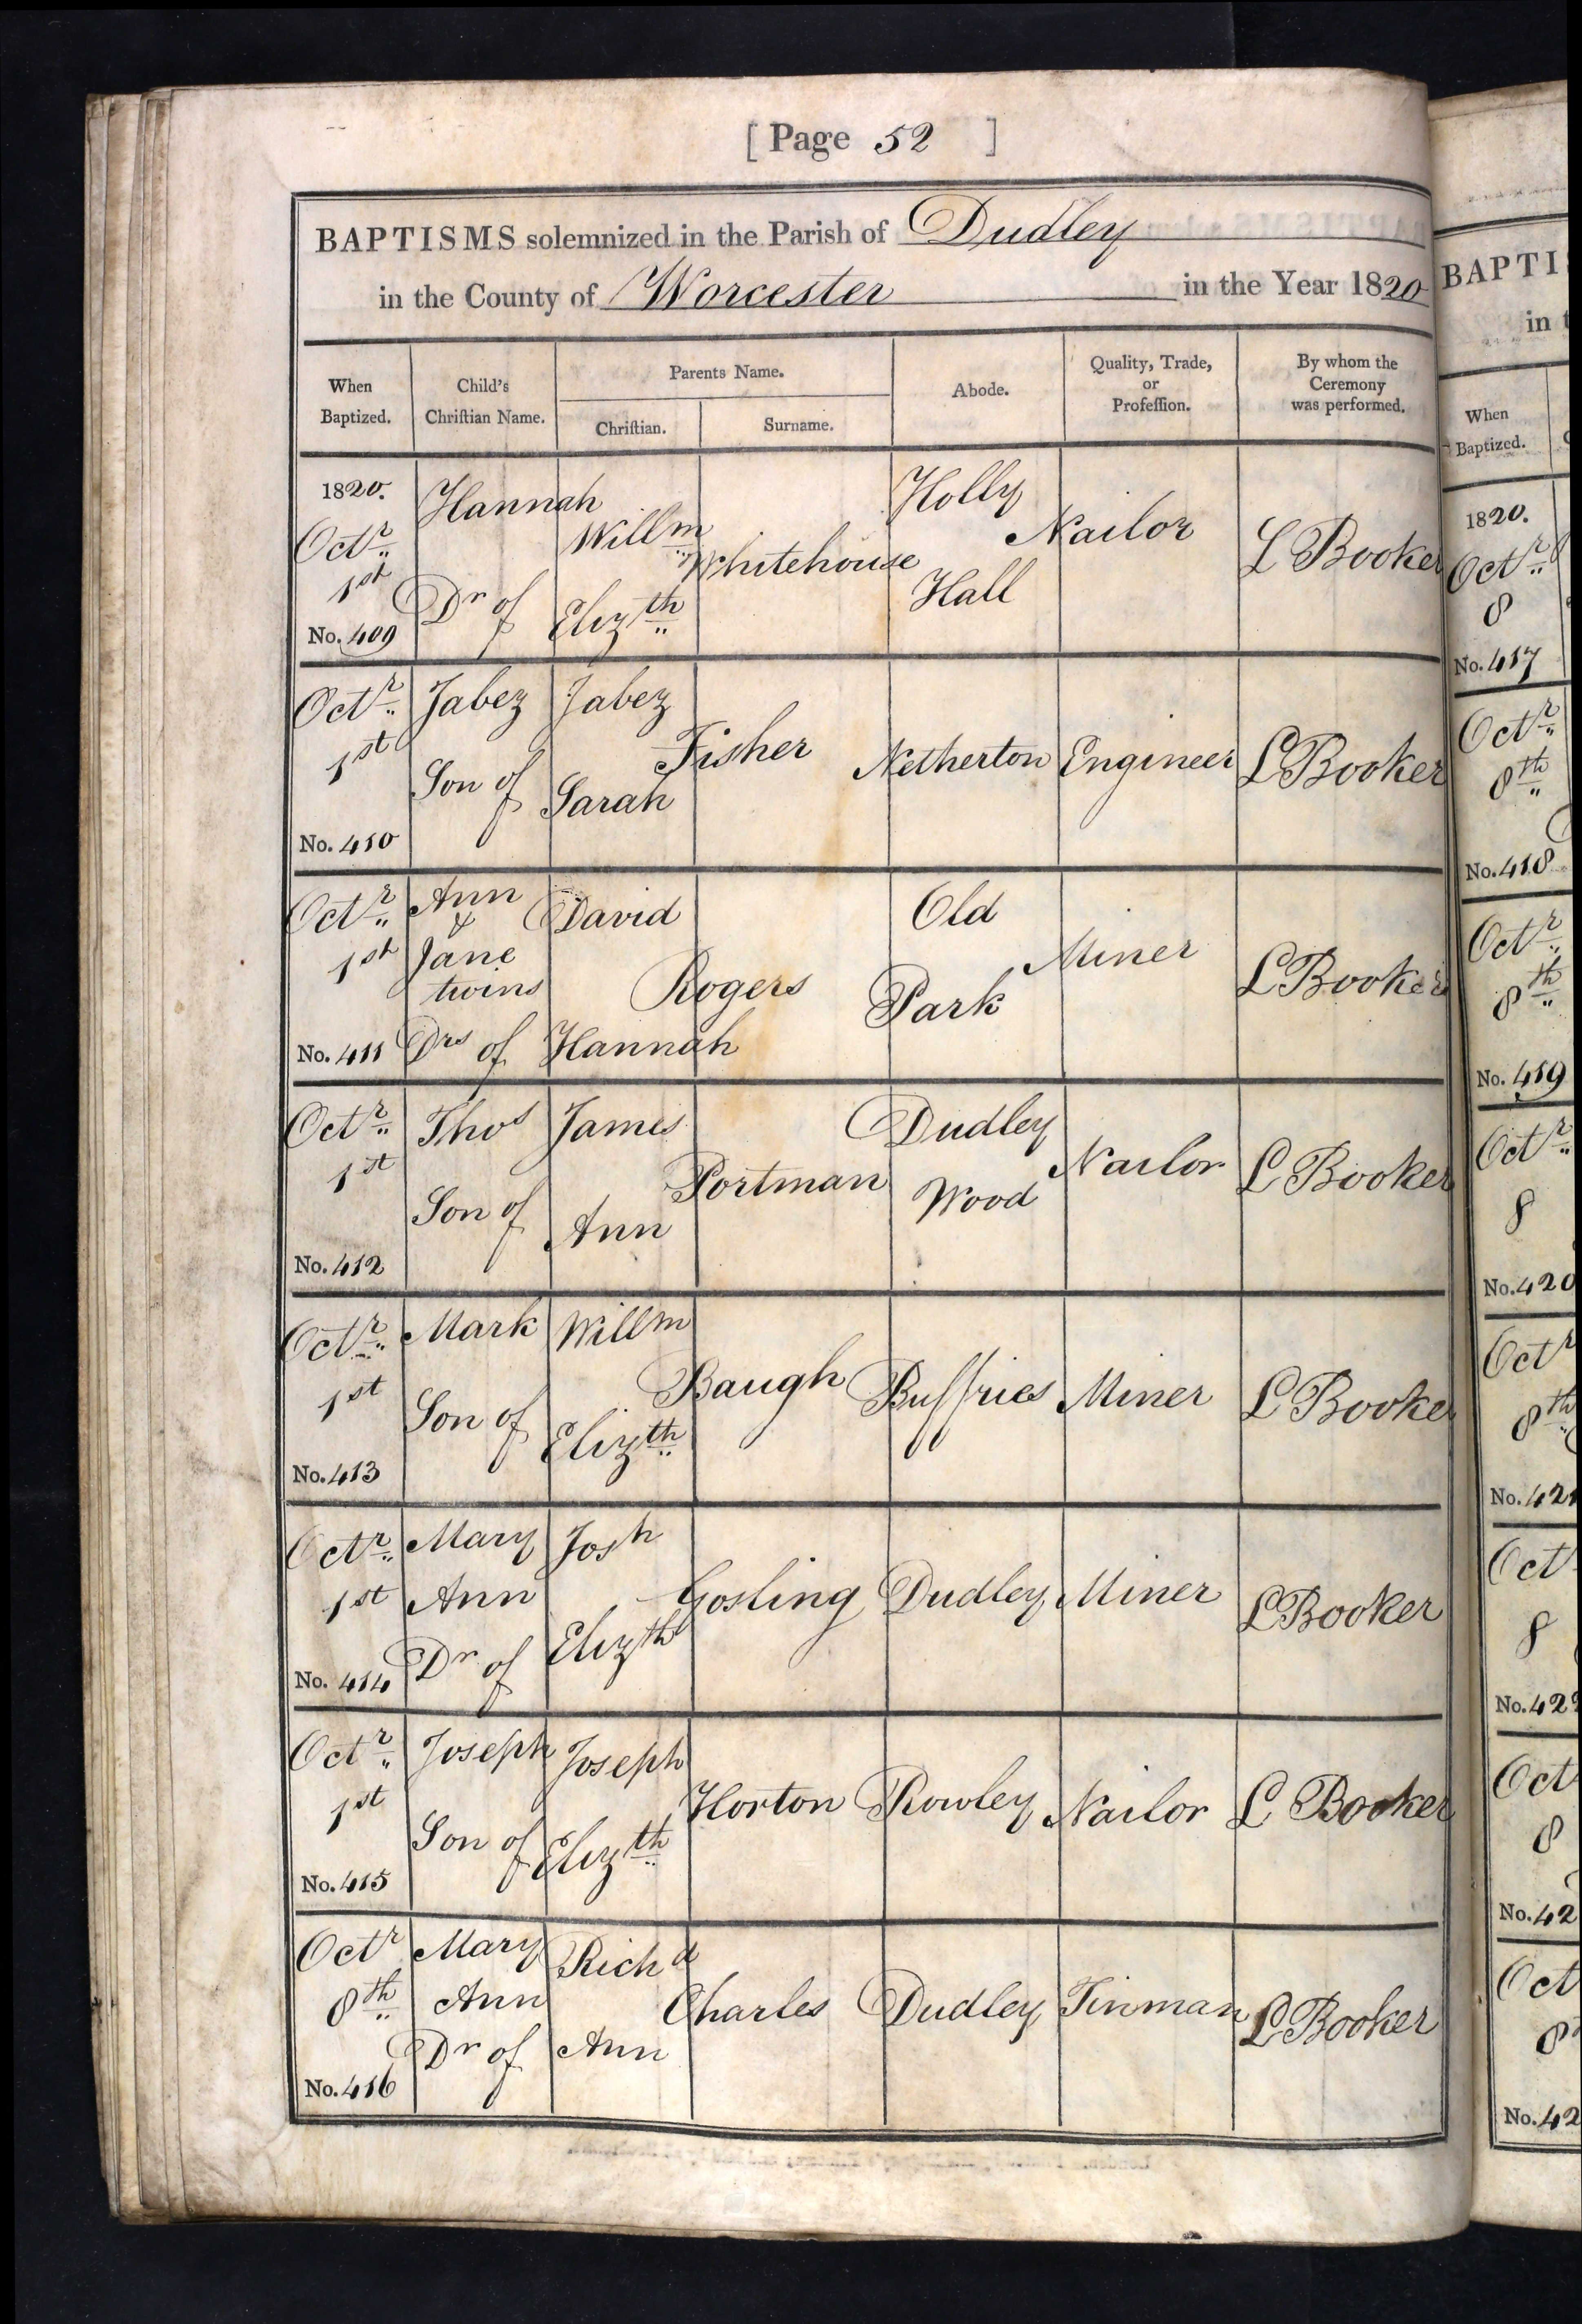 [ Page 52 ]
BAPTISMS solemnized in the Parish of Dudley
in the County of Worcester in the Year 1820
When Baptized. Child's Chriſtian Name. Parents Name. Chriſtian. Surname. Abode. Quality, Trade, or Profeſſion. By whom the Ceremony was performed.
1820. Octr 1st No. 409 Hannah Dr of Willm Elizth Whitehouse Holly Hall Nailor L Booker
Octr 1st No. 410 Jabez Son of Jabez Sarah Fisher Netherton Engineer L Booker
Octr 1st No. 411 Ann & Jane twins Drs of David Hannah Rogers Old Park Miner L Booker
Octr 1st No. 412 Thos Son of James Ann Portman Dudley Wood Nailor L Booker
Octr 1st No. 413 Mark Son of Willm Elizth Baugh Buffries Miner L Booker
Octr 1st No. 414 Mary Ann Dr of Josh Elizth Gosling Dudley Miner L Booker
Octr 1st No. 415 Joseph Son of Joseph Elizth Horton Rowley Nailor L Booker
Octr 8th No. 416 Mary Ann Dr of Richd Ann Charles Dudley Tinman L Booker
BAPTI
in t
When
Baptized.
1820.
Octr
8
No. 417
Octr
8th
No. 418
Octr
8th
No. 419
Octr
8
No. 420
Octr
8th
No. 421
Oct
8
No. 42
Oct
8
No. 42
Oct
8
No. 42